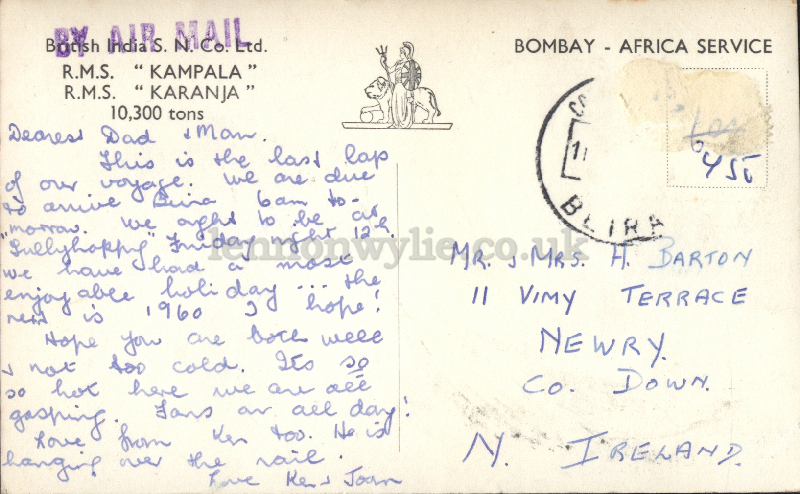 BY AIR MAIL
British India S. N. Co. Ltd.
R.M.S. "KAMPALA"
R.M.S. "KARANJA"
10,300 tons
BOMBAY - AFRICA SERVICE
Dearest Dad & Mam.
This is the last lap
of our voyage. We are due
to arrive Beira 6am to-
morrow. We ought to be at
Friday night 12th.
We have had a most
enjoyable holiday ... the
next is 1960 I hope!
Hope you are both well
& not too cold. Its so
so hot here we are all
gasping. Fans on all day!
Love from Ken too. He is
hanging over the rail.
Love Ken & Joan
BEIRA
450
MR. & MRS. H. BARTON
11 VIMY TERRACE
NEWRY.
CO. DOWN.
N. IRELAND.
lennonwylie.co.uk